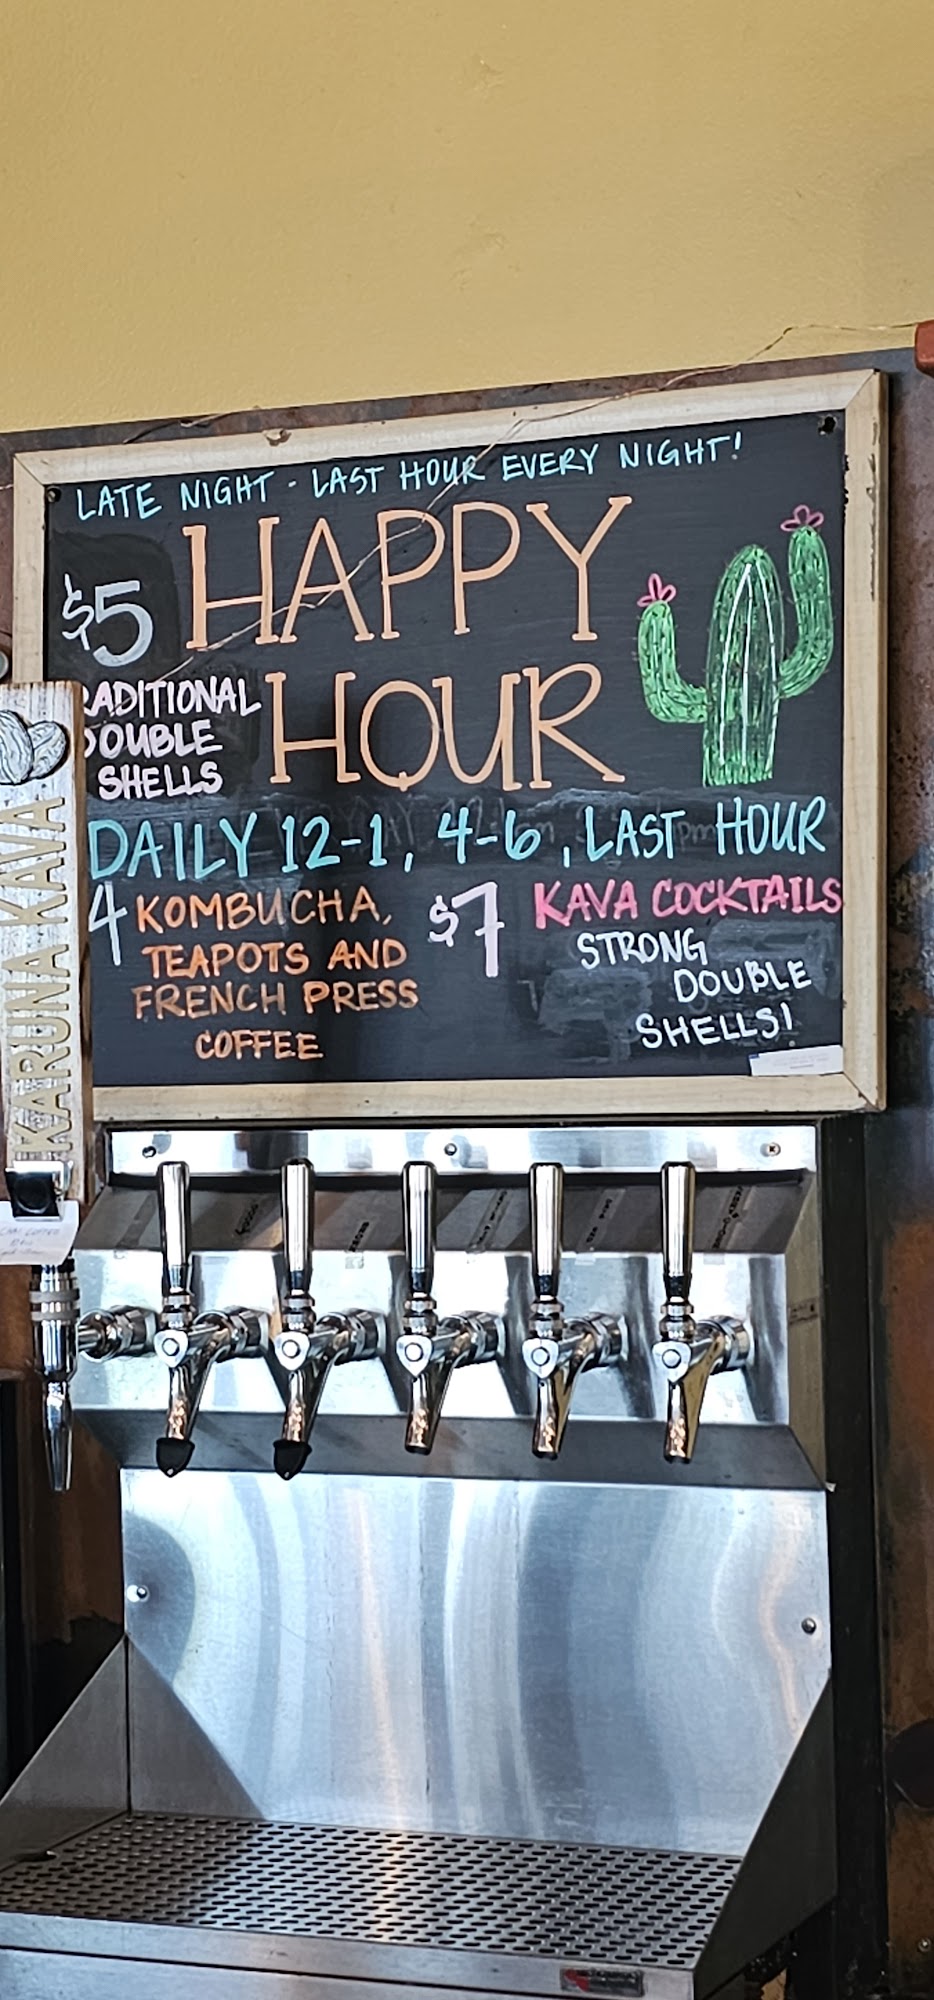 LATE NIGHT - LAST HOUR EVERY NIGHT!
$5 HAPPY
HOUR
RADITIONAL
DOUBLE
SHELLS
DAILY 12-1, 4-6, LAST HOUR
4 KOMBUCHA,
TEAPOTS AND
FRENCH PRESS
COFFEE
$7 KAVA COCKTAILS
STRONG
DOUBLE
SHELLS!
KARUNA KAVA